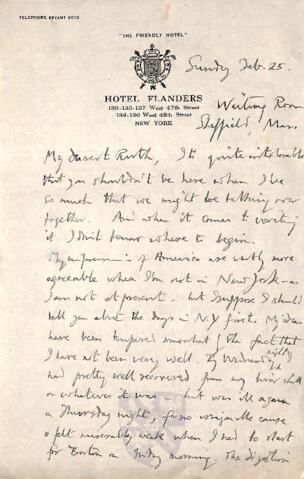 TELEPHONE BRYANT 8570
"THE FRIENDLY HOTEL"
Sunday Feb. 25.
HOTEL FLANDERS
133-135-137 West 47th Street
134-136 West 48th Street
NEW YORK
Writing Room
Sheffield, Mass
My dearest Ruth, It's quite intolerable
that you shouldn't be here when I've
so much that we might be talking over
together. And when it comes to writing
it I don't know where to begin.
My impression of America are vastly more
agreeable when I'm not in New York – as
I am not at present – but I suppose I should
tell you about the days in N.Y. first. My ideas
have been tempered somewhat by the fact that
I have not been very well. By Wednesday night I
had pretty well recovered from my liver chill
or whatever it was but was ill again
on Thursday night, for no assignable cause
& felt miserably weak when I had to start
for Boston on Friday morning. The digestion